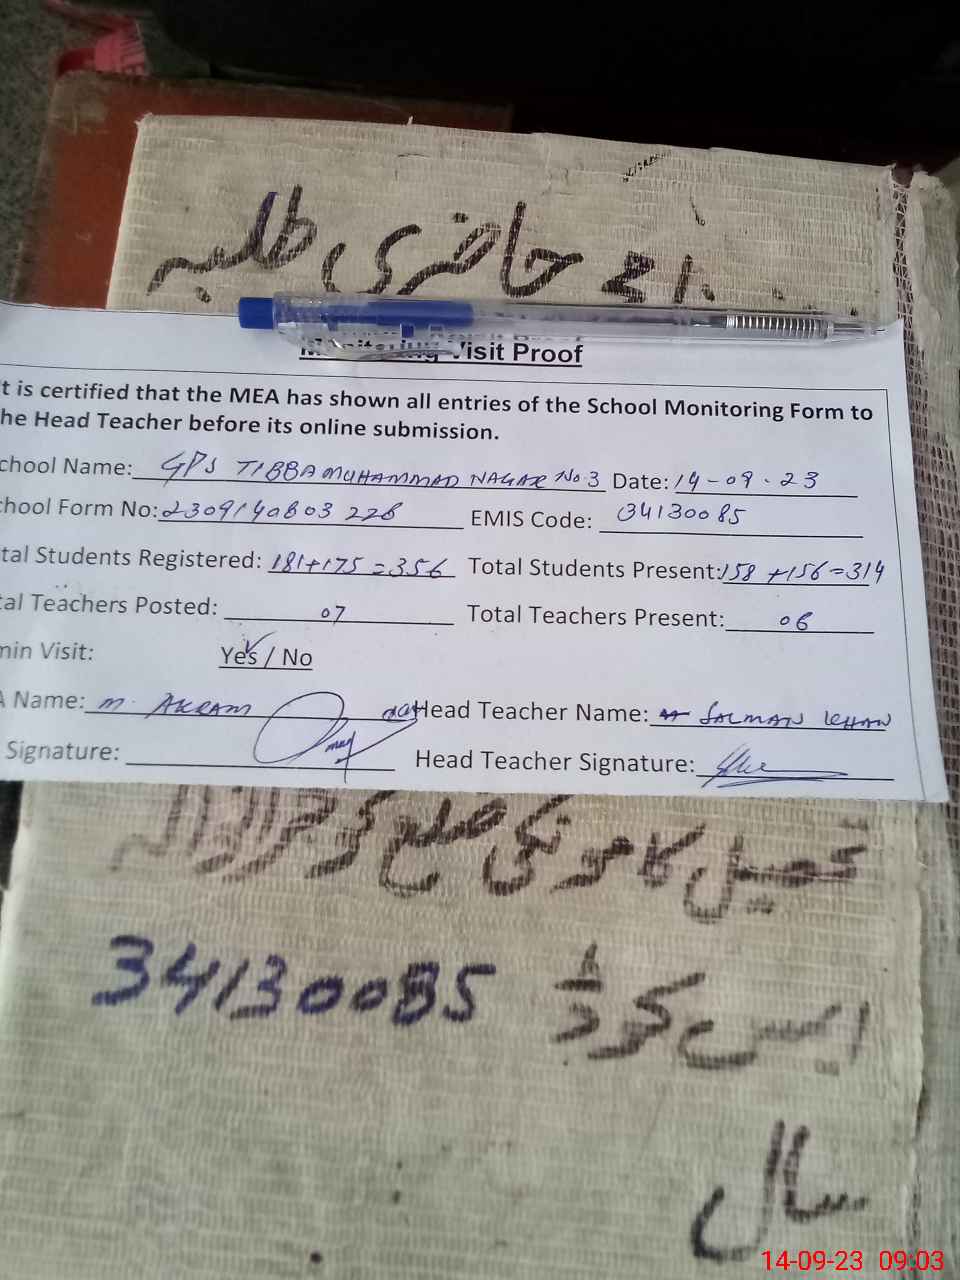 رجسٹر حاضری طلبہ
Monitoring Visit Proof
t is certified that the MEA has shown all entries of the School Monitoring Form to
he Head Teacher before its online submission.
chool Name: GPS TIBBA MUHAMMAD NAGAR No.3 Date: 14-09-23
chool Form No: 2309140803 228 EMIS Code: 34130085
tal Students Registered: 181+175=356 Total Students Present: 158+156=314
al Teachers Posted: 07 Total Teachers Present: 06
min Visit: Yes / No
A Name: M. AKRAM Head Teacher Name: SALMAN KHAN
Signature: Head Teacher Signature:
تحصیل کامونکی ضلع گوجرانوالہ
34130085
سال
14-09-23 09:03